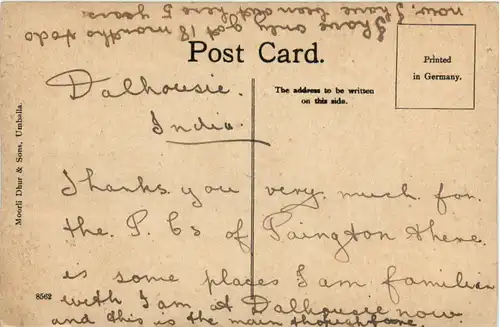 I have only got 18 months to do
now, I have been out here 5 years
Post Card.
Printed
in Germany.
The address to be written
on this side.
Dalhousie.
India.
Thanks you very much for
the P. Cs of Paington there
is some places I am familier
with I am at Dalhousie now
and this is the main thoughfare
Moorli Dhur & Sons, Umballa.
8562